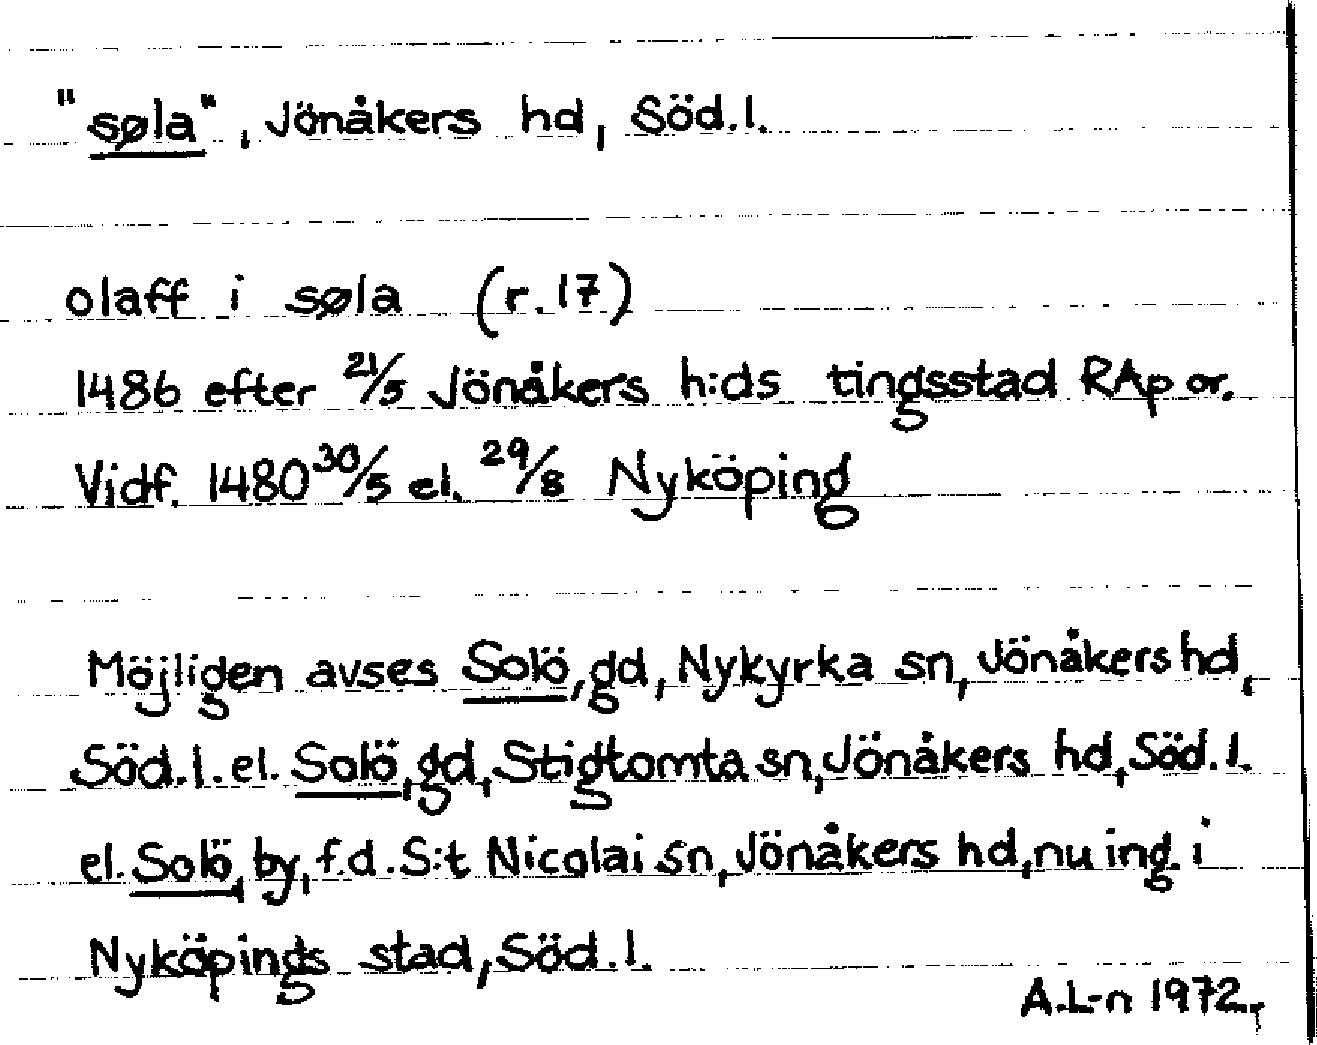 "søla", Jönåkers hd, Söd.l.
olaff i søla (r.17)
1486 efter 21/5 Jönåkers h:ds tingsstad RAp or.
Vidf. 1480 30/5 el. 29/8 Nyköping
Möjligen avses Solö, gd, Nykyrka sn, Jönåkers hd,
Söd.l. el. Solö, gd, Stigtomta sn, Jönåkers hd, Söd.l.
el. Solö, by, f.d. S:t Nicolai sn, Jönåkers hd, nu ing. i
Nyköpings stad, Söd.l.
A.L-n 1972.